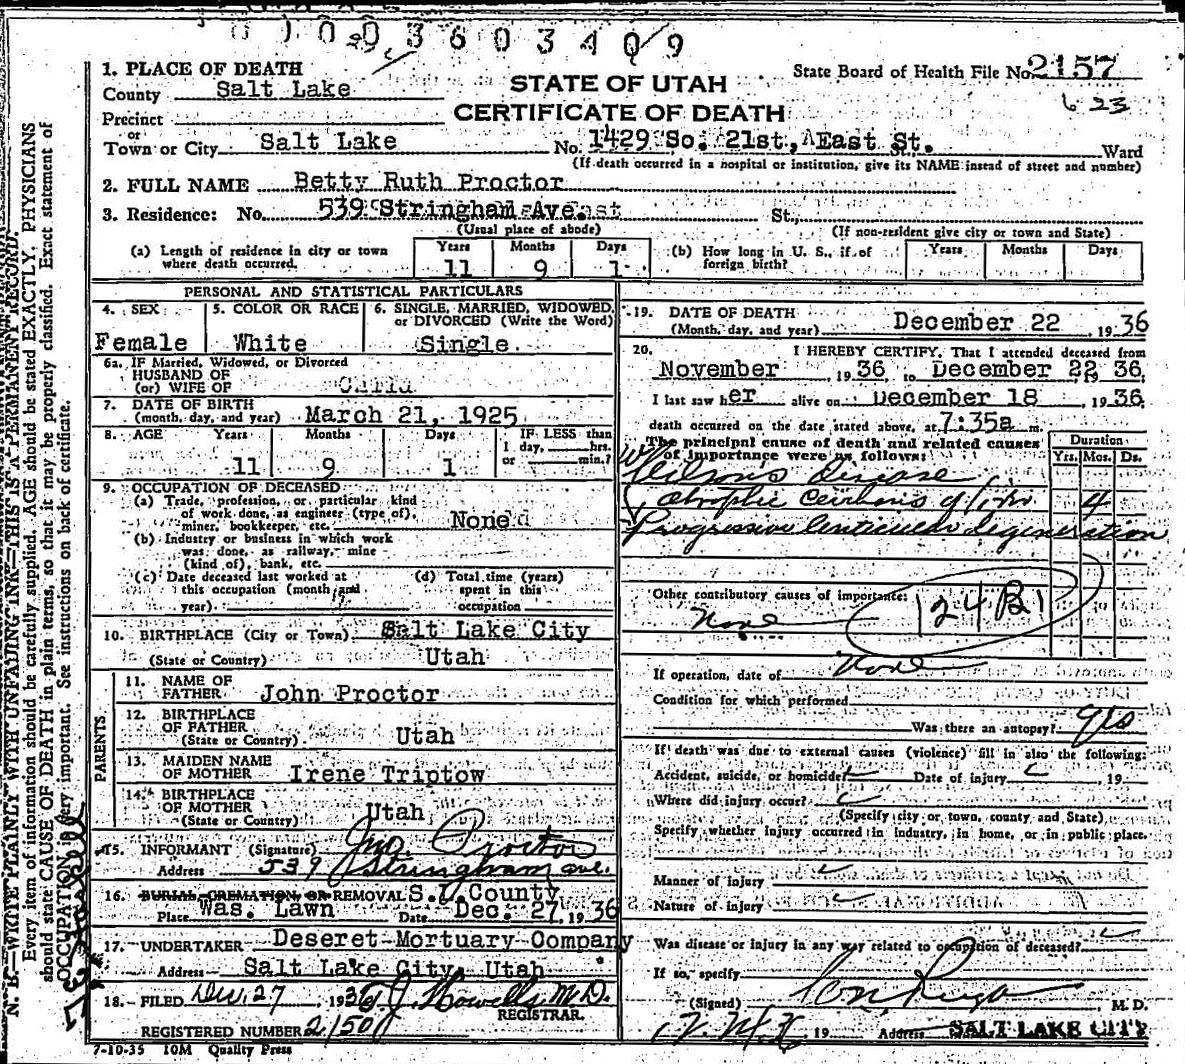 0 1 0 0 3 6 0 3 4 0 9
1. PLACE OF DEATH
County Salt Lake
STATE OF UTAH
CERTIFICATE OF DEATH
State Board of Health File No. 2157
23
Precinct
or
Town or City Salt Lake No. 1429 So. 21st, East St. Ward
(If death occurred in a hospital or institution, give its NAME insead of street and number)
2. FULL NAME Betty Ruth Proctor
3. Residence: No. 539 Stringham Ave. St.,
(Usual place of abode) (If non-resident give city or town and State)
(a) Length of residence in city or town where death occurred. Years 11 Months 9 Days 1
(b) How long in U. S., if of foreign birth? Years Months Days
PERSONAL AND STATISTICAL PARTICULARS
4. SEX Female
5. COLOR OR RACE White
6. SINGLE, MARRIED, WIDOWED, or DIVORCED (Write the Word) Single
6a. IF Married, Widowed, or Divorced
HUSBAND OF
(or) WIFE OF Child
7. DATE OF BIRTH
(month, day, and year) March 21, 1925
8. AGE Years 11 Months 9 Days 1
IF LESS than
1 day, hrs.
or min.?
9. OCCUPATION OF DECEASED
(a) Trade, profession, or particular kind
of work done, as engineer (type of),
miner, bookkeeper, etc. None
(b) Industry or business in which work
was done, as railway, mine
(kind of), bank, etc.
(c) Date deceased last worked at
this occupation (month and
year)
(d) Total time (years)
spent in this
occupation
10. BIRTHPLACE (City or Town) Salt Lake City
(State or Country) Utah
PARENTS
11. NAME OF
FATHER John Proctor
12. BIRTHPLACE
OF FATHER
(State or Country) Utah
13. MAIDEN NAME
OF MOTHER Irene Triptow
14. BIRTHPLACE
OF MOTHER
(State or Country) Utah
15. INFORMANT (Signature) Jno. Proctor
Address 539 Stringham ave.
16. BURIAL, CREMATION, OR REMOVAL S.L. County
Place Was. Lawn Date Dec. 27, 1936
17. UNDERTAKER Deseret Mortuary Company
Address Salt Lake City, Utah
18. FILED Dec. 27, 1936 Howells M.D.
REGISTRAR.
REGISTERED NUMBER 2150
7-10-35 10M Quality Press
19. DATE OF DEATH
(Month, day, and year) December 22, 1936
20. I HEREBY CERTIFY, That I attended deceased from
November 1936 to December 22, 1936,
I last saw her alive on December 18 1936
death occurred on the date stated above, at 7:35a m.
The principal cause of death and related causes
of importance were as follows:
Duration
Yrs. Mos. Ds.
Wilson's Disease
atrophic cirrhosis of liver 4
Progressive lenticular degeneration
Other contributory causes of importance:
None
124B1
If operation, date of None
Condition for which performed
Was there an autopsy? yes
If death was due to external causes (violence) fill in also the following:
Accident, suicide, or homicide? Date of injury 19
Where did injury occur?
(Specify city or town, county and State)
Specify whether injury occurred in industry, in home, or in public place.
Manner of injury
Nature of injury
Was disease or injury in any way related to occupation of deceased?
If so, specify
(Signed) M. D.
19 Address SALT LAKE CITY
N. B.—WRITE PLAINLY WITH UNFADING INK—THIS IS A PERMANENT RECORD.
Every item of information should be carefully supplied. AGE should be stated EXACTLY. PHYSICIANS
should state CAUSE OF DEATH in plain terms, so that it may be properly classified. Exact statement of
OCCUPATION is very important. See instructions on back of certificate.